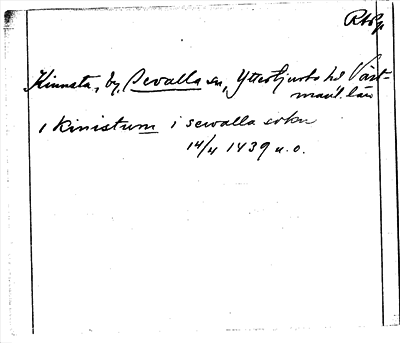 Kinnsta, by, Sevalla sn, Yttertjurbo hd Väst-
manl. län
i Kinistum i sewalla sokn
14/4 1439 u.o.